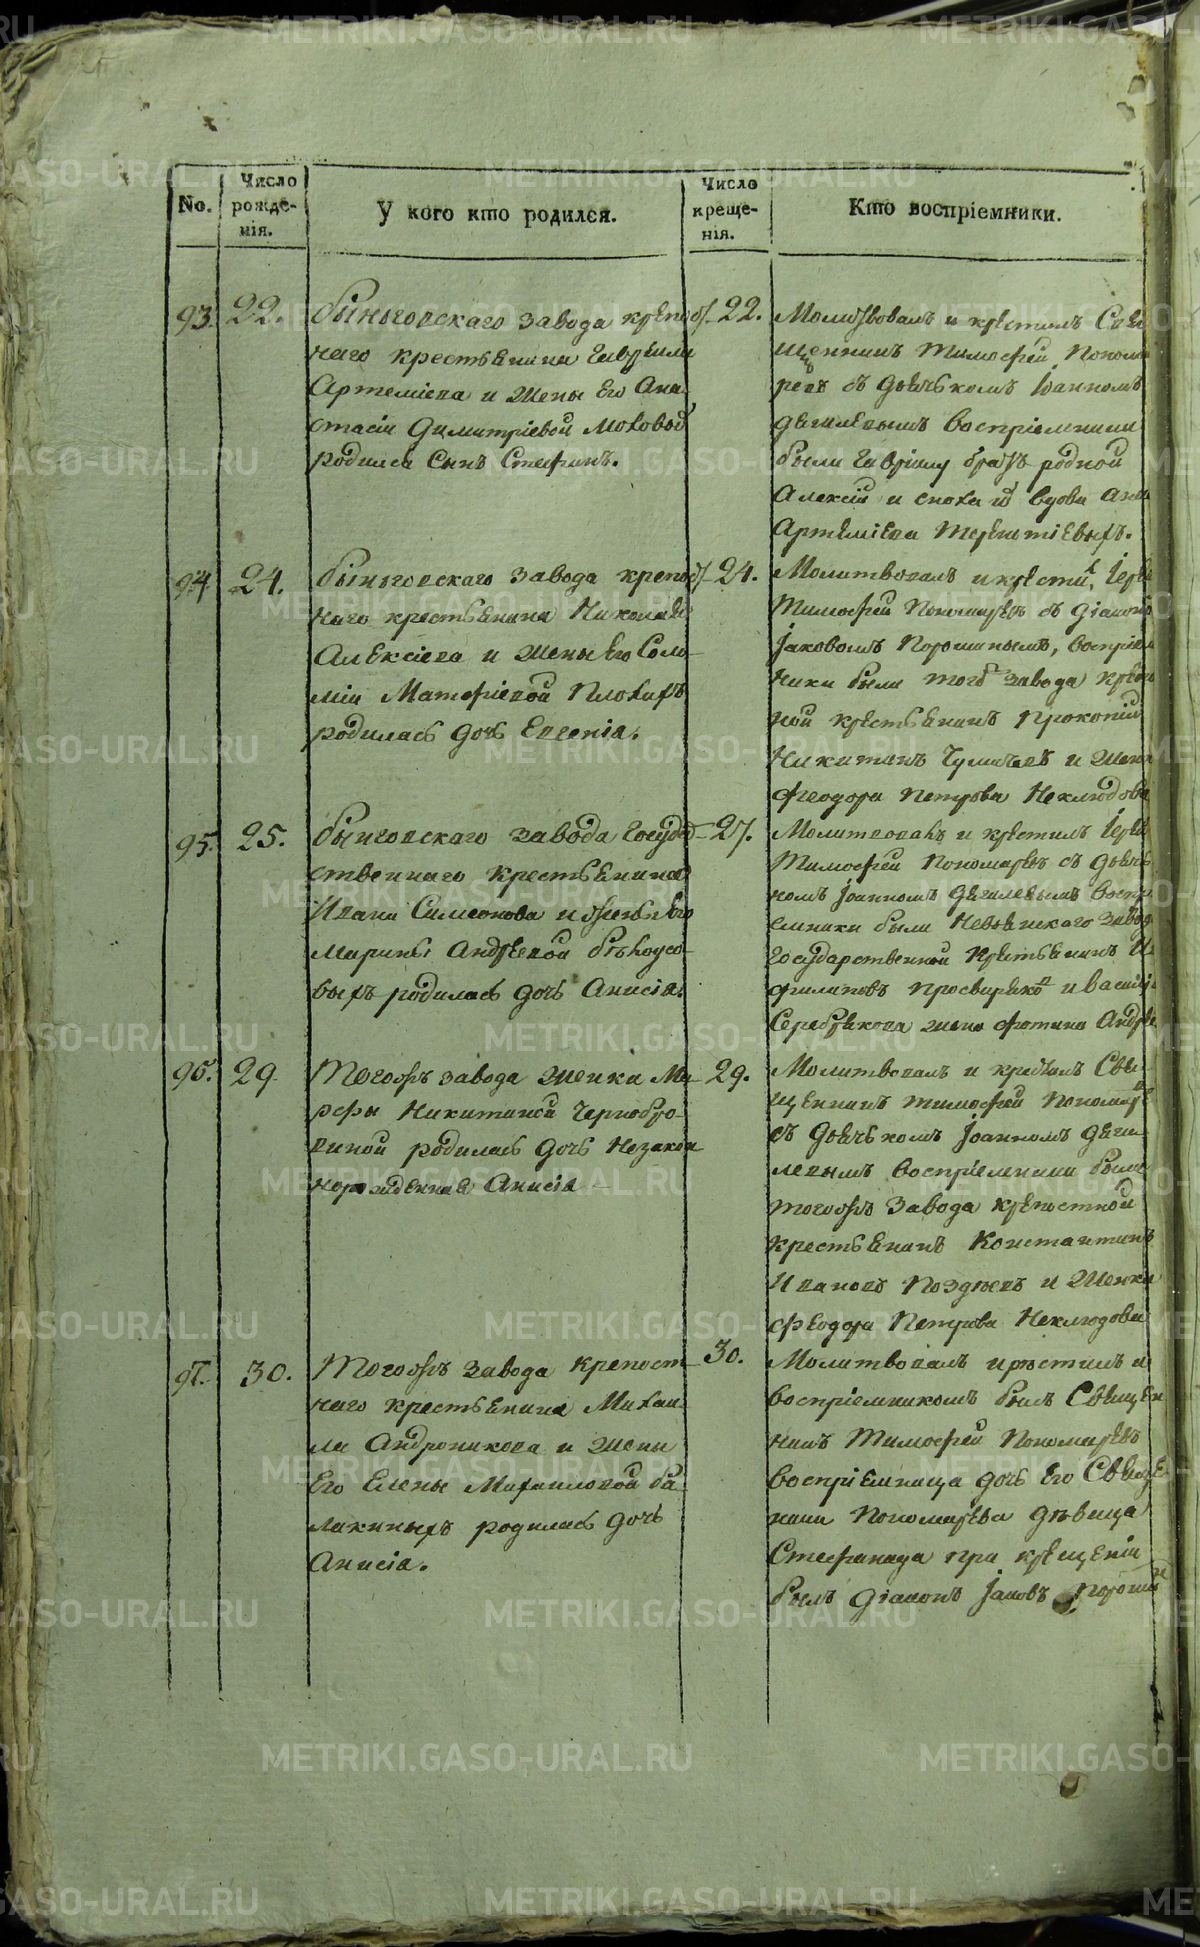 No.
Число рожде- нія.
У кого кто родился.
Число креще- нія.
Кто воспріемники.
93.
22.
Быньговскаго завода крепос
наго крестьянина Гавріила
Артеміева и жены Его Ана
стасіи Димитріевой Моховой
родился Сынъ Стефанъ.
22.
Молитвовалъ и крестилъ Свя
щенникъ Тимофей Пономо
ревъ съ дьячькомъ Іоанномъ
Дягилевымъ воспріемники
были Гавріилу братъ родной
Алексій и вдова Анна
Артеміева Терентіевыхъ.
94.
24.
Быньговскаго завода крепос
наго крестьянина Николая
Алексіева и жены Его Соло
міи Матфіевой Плохихъ
родилась дочь Евгенія.
24.
Молитвовалъ и крестилъ Іерей
Тимофей Пономаревъ съ діакономъ
Іаковомъ Порошинымъ, воспріем
ники были тогожъ завода крепос
ной крестьянинъ Прокопій
Никитинъ и женка
Феодора Петрова Неклюдова
95.
25.
Быньговскаго завода Государ
ственнаго крестьянина
Ивана Симеонова и жены Его
Марины Андреевой Бѣлоусо
выхъ родилась дочь Анисія.
27.
Молитвовалъ и крестилъ Іерей
Тимофей Пономаревъ съ дьячь
комъ Іоанномъ Дягилевымъ воспрі
емники были Невьянскаго завода
Государственной крестьянинъ
Филиповъ и Василія
Серебрякова жена Фотина Андрее
96.
29.
Тогожъ завода женки Ма
рфы Никитиной Чернобро
виной родилась дочь Незакон
норожденная Анисія
29.
Молитвовалъ и крестилъ Свя
щенникъ Тимофей Пономарев
съ дьячькомъ Іоанномъ Дяги
левымъ воспріемники были
тогожъ завода крепостной
крестьянинъ Константинъ
Ивановъ Поздѣевъ и женка
Феодора Петрова Неклюдова
97.
30.
Тогожъ завода крепост
наго крестьянина Михаи
ла Андроникова и жены
Его Елены Михаиловой Ба
лакиныхъ родилась дочь
Анисія.
30.
Молитвовалъ и крестилъ и
воспріемникомъ былъ Священ
никъ Тимофей Пономаревъ
воспріемница дочь Его Священ
ника Пономарева дѣвица
Стефанида при крещеніи
былъ діаконъ Іаковъ Порошин
METRIKI.GASO-URAL.RU